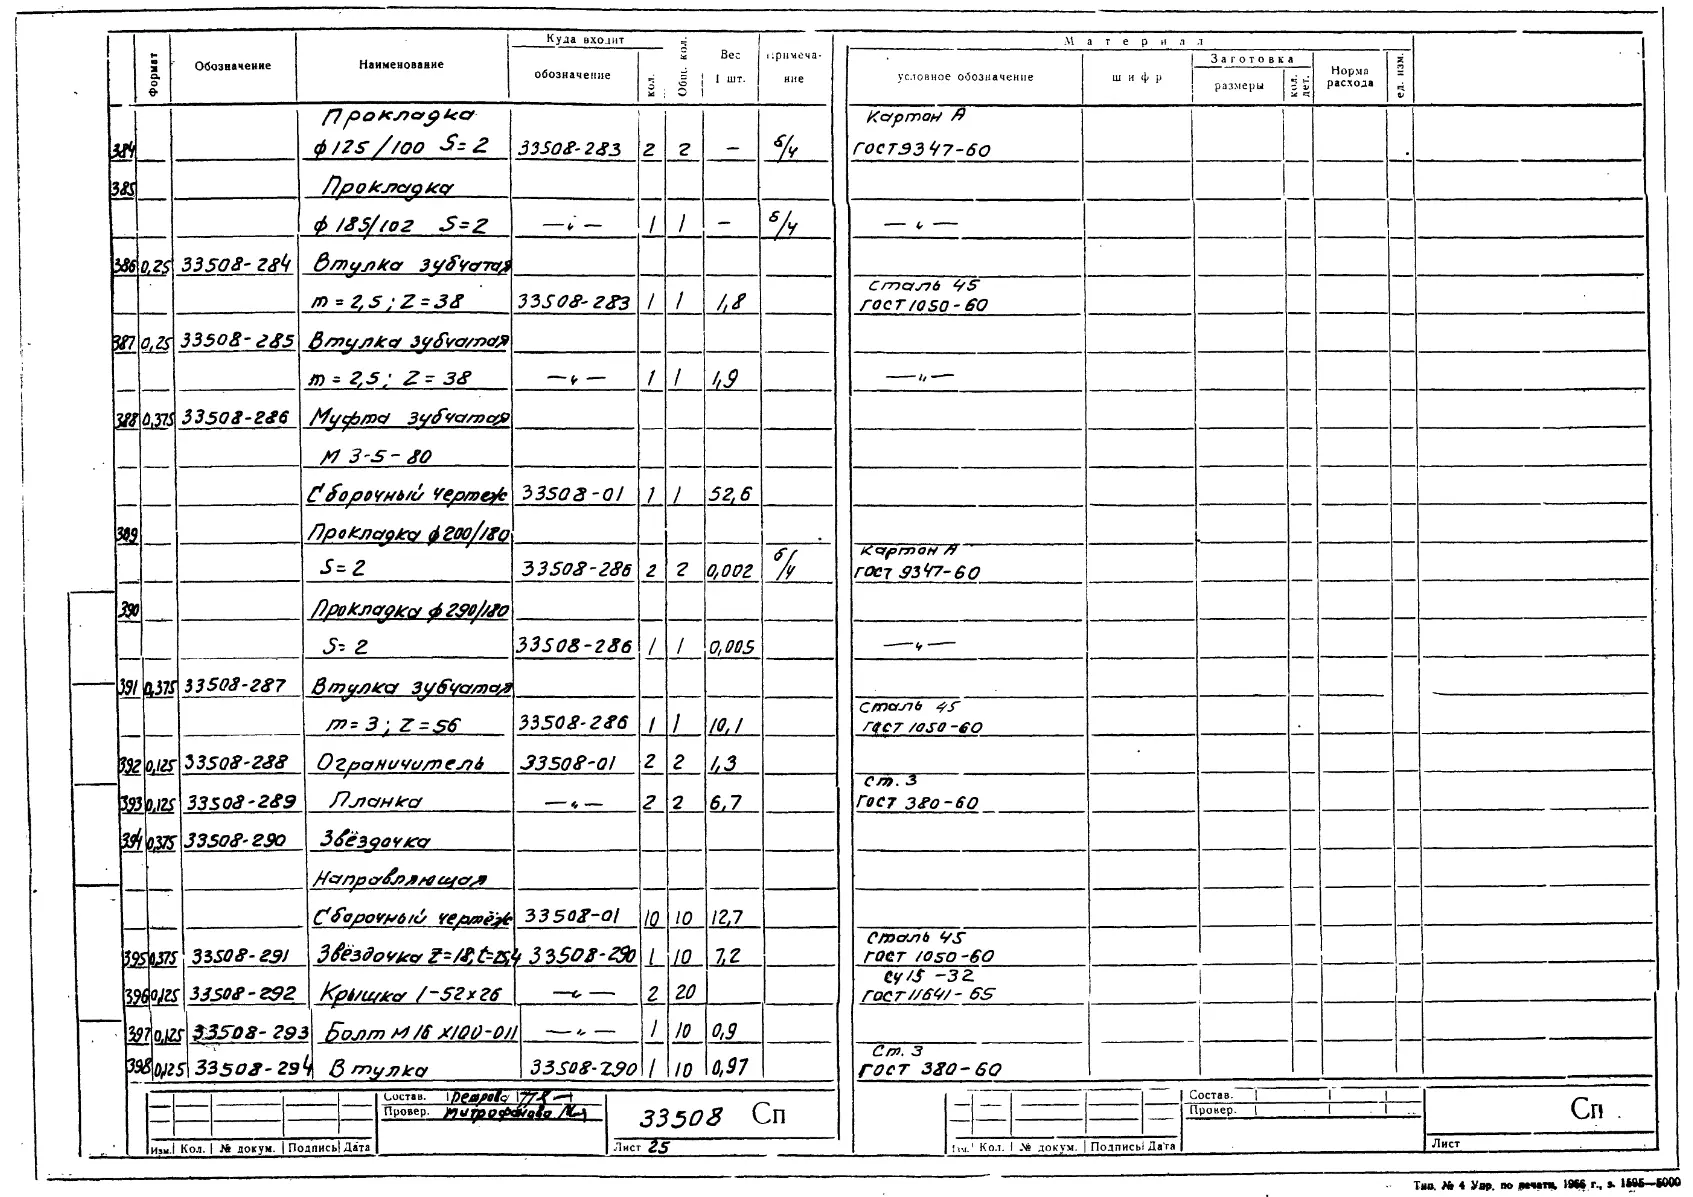 Формат Обозначение Наименование Куда входит обозначение кол. Общ. кол. Вес 1 шт. Примечание
Материал условное обозначение шифр Заготовка размеры кол. дет. Норма расхода ед. изм.
Прокладка Картон А
384 ф125/100 S=2 33508-283 2 2 — б/ч ГОСТ 9347-60
385 Прокладка
ф185/102 S=2 —"— 1 1 — б/ч —"—
386 0,25 33508-284 Втулка зубчатая
Сталь 45
m=2,5; Z=38 33508-283 1 1 1,8 ГОСТ 1050-60
387 0,25 33508-285 Втулка зубчатая
m=2,5; Z=38 —"— 1 1 1,9 —"—
388 0,375 33508-286 Муфта зубчатая
М 3-5-80
Сборочный чертеж 33508-01 1 1 52,6
389 Прокладка ф200/180
Картон А
S=2 33508-286 2 2 0,002 б/ч ГОСТ 9347-60
390 Прокладка ф290/180
S=2 33508-286 1 1 0,005 —"—
391 0,375 33508-287 Втулка зубчатая
Сталь 45
m=3; Z=56 33508-286 1 1 10,1 ГОСТ 1050-60
392 0,125 33508-288 Ограничитель 33508-01 2 2 1,3
Ст. 3
393 0,125 33508-289 Планка —"— 2 2 6,7 ГОСТ 380-60
394 0,375 33508-290 Звёздочка
Направляющая
Сборочный чертёж 33508-01 10 10 12,7
Сталь 45
395 0,375 33508-291 Звёздочка Z=18, t=25,4 33508-290 1 10 7,2 ГОСТ 1050-60
СЧ 15-32
396 0,125 33508-292 Крышка 1-52x26 —"— 2 20 ГОСТ 11641-65
397 0,125 33508-293 Болт М16x100-011 —"— 1 10 0,9
Ст. 3
398 0,125 33508-294 Втулка 33508-290 1 10 0,97 ГОСТ 380-60
Состав. Петрова
Провер. Митрофанова
33508 Сп
Изм. Кол. № докум. Подпись Дата Лист 25
Состав.
Провер.
Сп
Изм. Кол. № докум. Подпись Дата Лист
Тип. № 4 Упр. по печати, 1966 г., з. 1595—5000